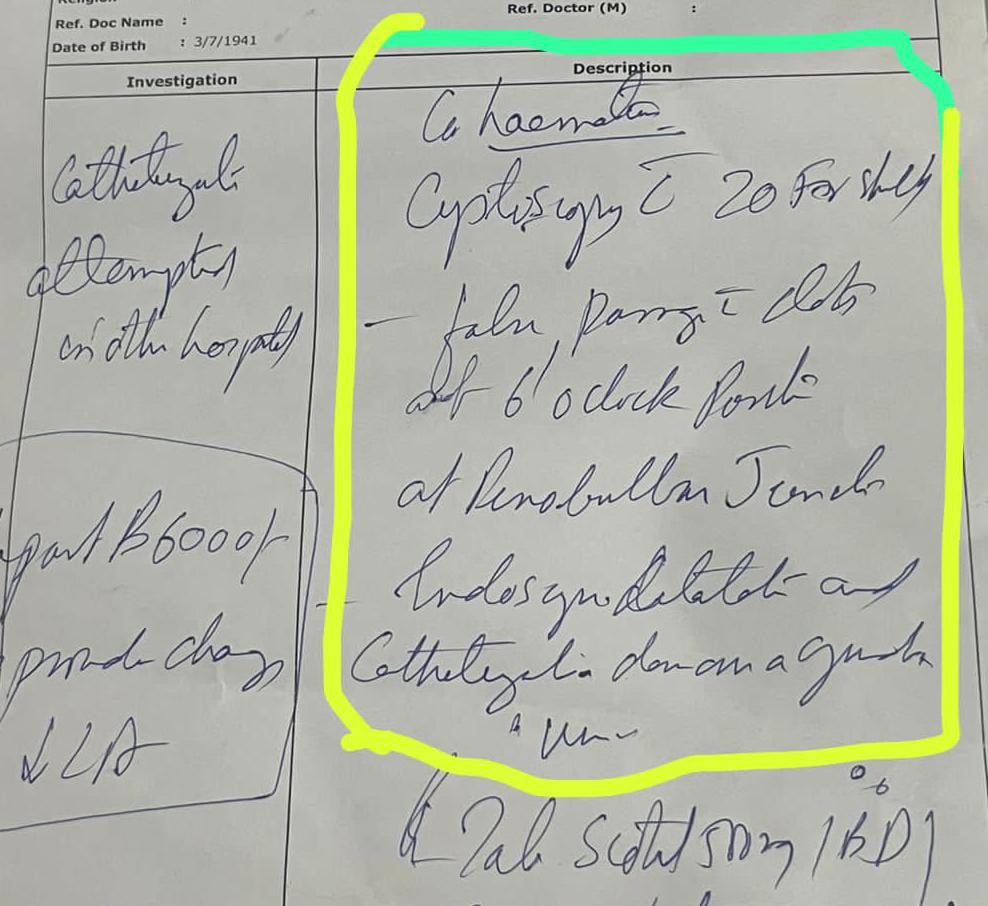 Ref. Doctor (M) :
Ref. Doc Name :
Date of Birth : 3/7/1941
Investigation
Description
haematuria
Cystoscopy c̄ 20 Fr sheath
- false passage c̄ clots
at 6 o'clock Position
at Penobulbar Junction
- Endoscopic dilatation and
Catheterization done on a guide
Catheterization
attempted
in other hospital
part B 6000/-
procedure charge
LA
Tab 500mg (BD)